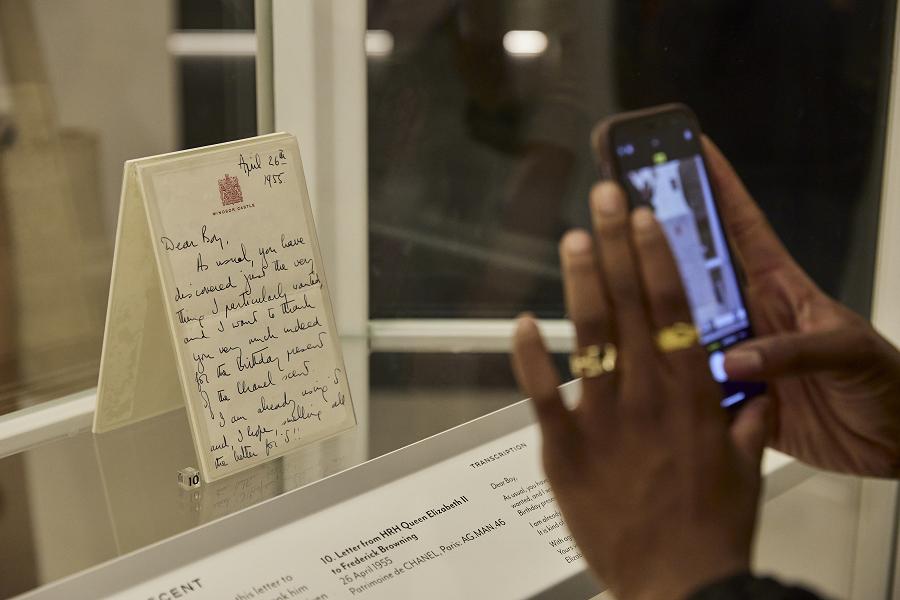 April 26th
1955.
WINDSOR CASTLE
Dear Boy,
As usual, you have
discovered just the very
thing I particularly wanted,
and I want to thank
you very much indeed
for the Birthday present
of the Chanel scent.
I am already using it
and, I hope, smelling all
the better for it!!
10
TRANSCRIPTION
Dear Boy,
As usual, you hav
wanted, and I w
Birthday prese
I am alread
It is kind o
With ag
Yours
Elizab
10. Letter from HRH Queen Elizabeth II
to Frederick Browning
26 April 1955
Patrimoine de CHANEL, Paris: AG.MAN.46
CENT
this letter to
nk him
ven